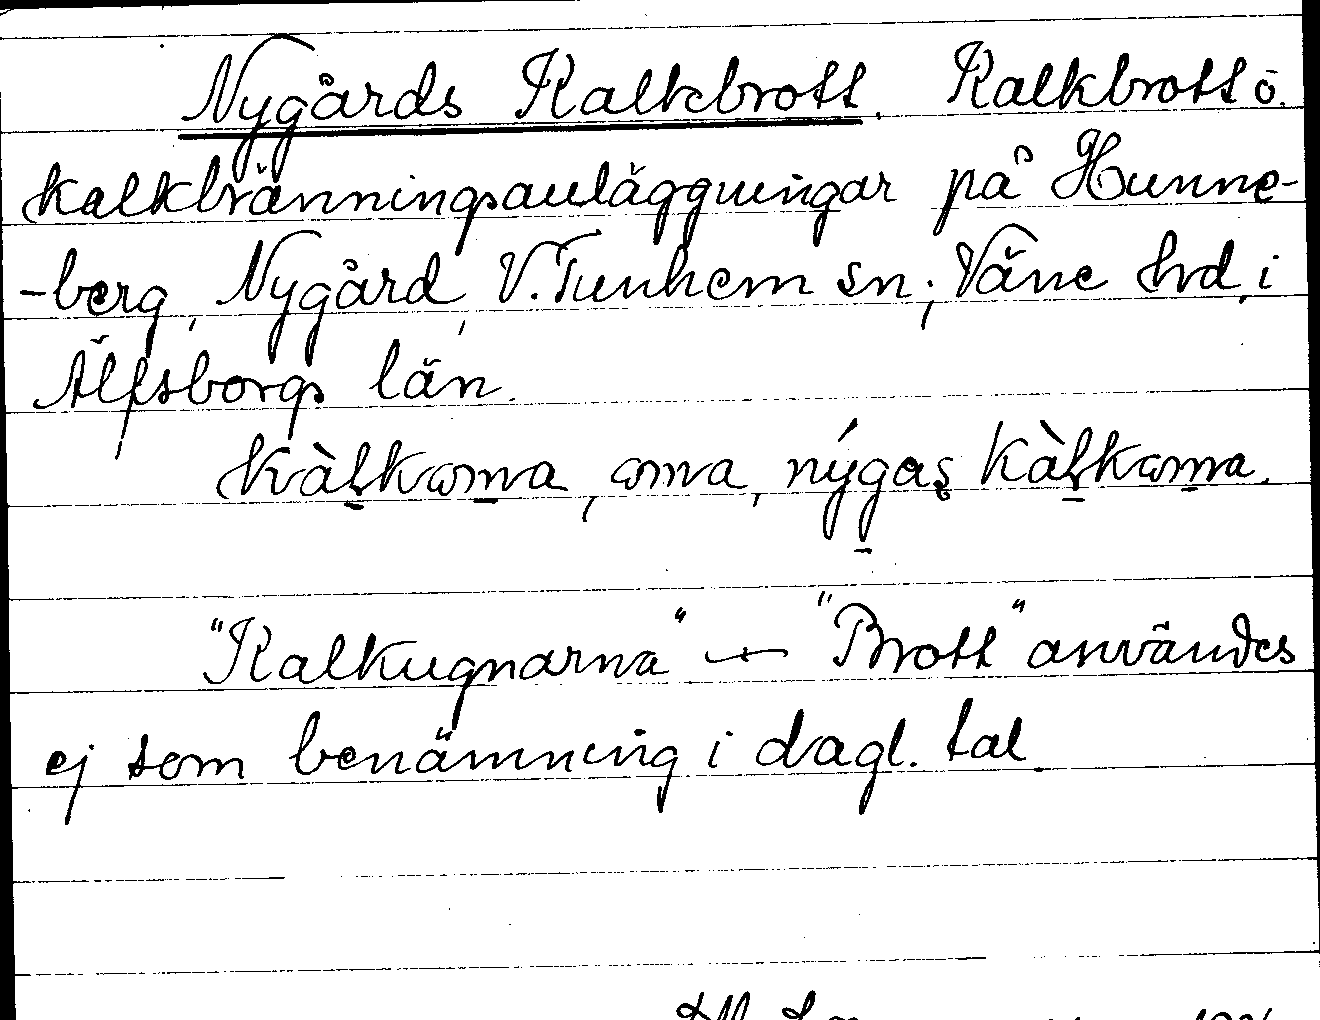 Nygårds Kalkbrott. Kalkbrott o.
kalkbränningsanläggningar på Hunne-
-berg, Nygård, V. Tunhem sn; Väne hd, i
Älfsborgs län.
"Kalkugnarna" — "Brott" användes
ej som benämning i dagl. tal.